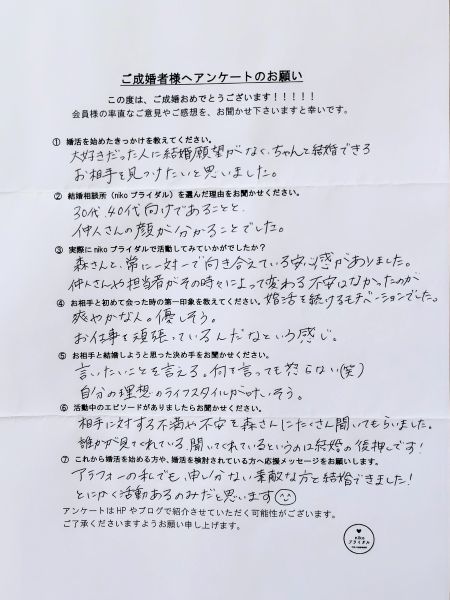 ご成婚者様へアンケートのお願い
この度は、ご成婚おめでとうございます！！！！！
会員様の率直なご意見やご感想を、お聞かせ下さいますと幸いです。
① 婚活を始めたきっかけを教えてください。
大好きだった人に結婚願望がなく、ちゃんと結婚できる
お相手を見つけたいと思いました。
② 結婚相談所（nikoブライダル）を選んだ理由をお聞かせください。
30代、40代向けであることと、
仲人さんの顔が分かることでした。
③ 実際にnikoブライダルで活動してみていかがでしたか？
森さんと、常に一対一で向き合えている安心感がありました。
仲人さんや担当者がその時々によって変わる不安はなかったのが
婚活を続けるモチベーションでした。
④ お相手と初めて会った時の第一印象を教えてください。
爽やかな人。優しそう。
お仕事を頑張っているんだなという感じ。
⑤ お相手と結婚しようと思った決め手をお聞かせください。
言いたいことを言える。何を言っても怒らない(笑)
自分の理想のライフスタイルが叶いそう。
⑥ 活動中のエピソードがありましたらお聞かせください。
相手に対する不満や不安を森さんにたくさん聞いてもらいました。
誰かが見てくれている、聞いてくれているというのは結婚の後押しです！
⑦ これから婚活を始める方や、婚活を検討されている方へ応援メッセージをお願いします。
アラフォーの私でも、申し分ない素敵な方と結婚できました！
とにかく活動あるのみだと思います
アンケートはHPやブログで紹介させていただく可能性がございます。
ご了承くださいますようお願い申し上げます。
niko
ブライダル